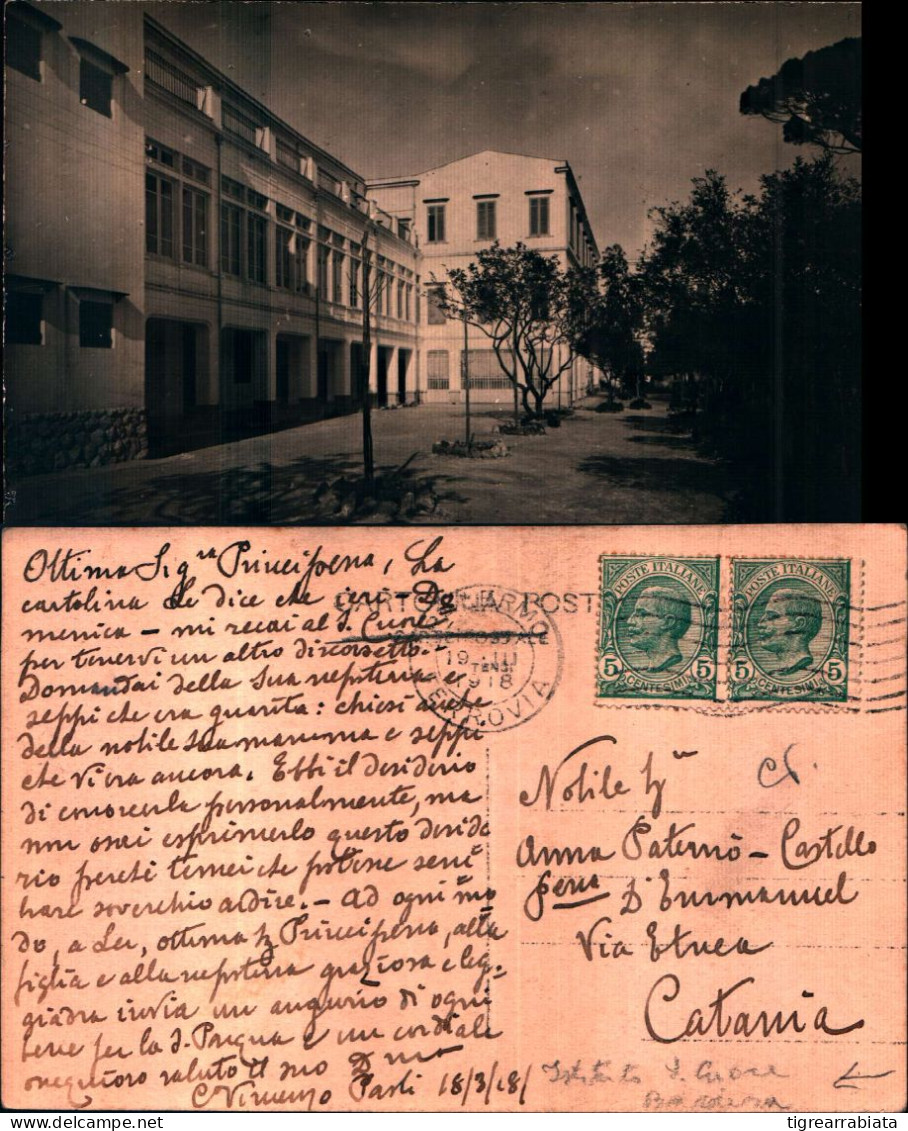 Ottima Sig.ra Principessa, La
cartolina Le dice che ieri - Do
menica - mi recai al S. Cuore
per tenervi un altro discorsetto.
Domandai della Sua nepotina e
seppi che era guarita: chiesi anche
della nobile Sua mamma e seppi
che vi era ancora. Ebbi il desiderio
di conoscerla personalmente, ma
non osai esprimerlo questo deside
rio perchè temei che potesse sem
brare soverchio ardire. - Ad ogni mo
do, a Lei, ottima Principessa, alla
figlia e alla nepotina graziosa e leg-
giadra invio un augurio di ogni
bene per la S. Pasqua e un cordiale
ossequioso saluto il suo
Vincenzo 18/3/18/
POSTE ITALIANE
5 5
CENTESIMI
POSTE ITALIANE
5 5
CENTESIMI
19 III
1918
FERROVIA
Nobile
Anna Paternò - Castello
D'Emmanuel
Via Etnea
Catania
Istituto S. Cuore
tigrearrabiata